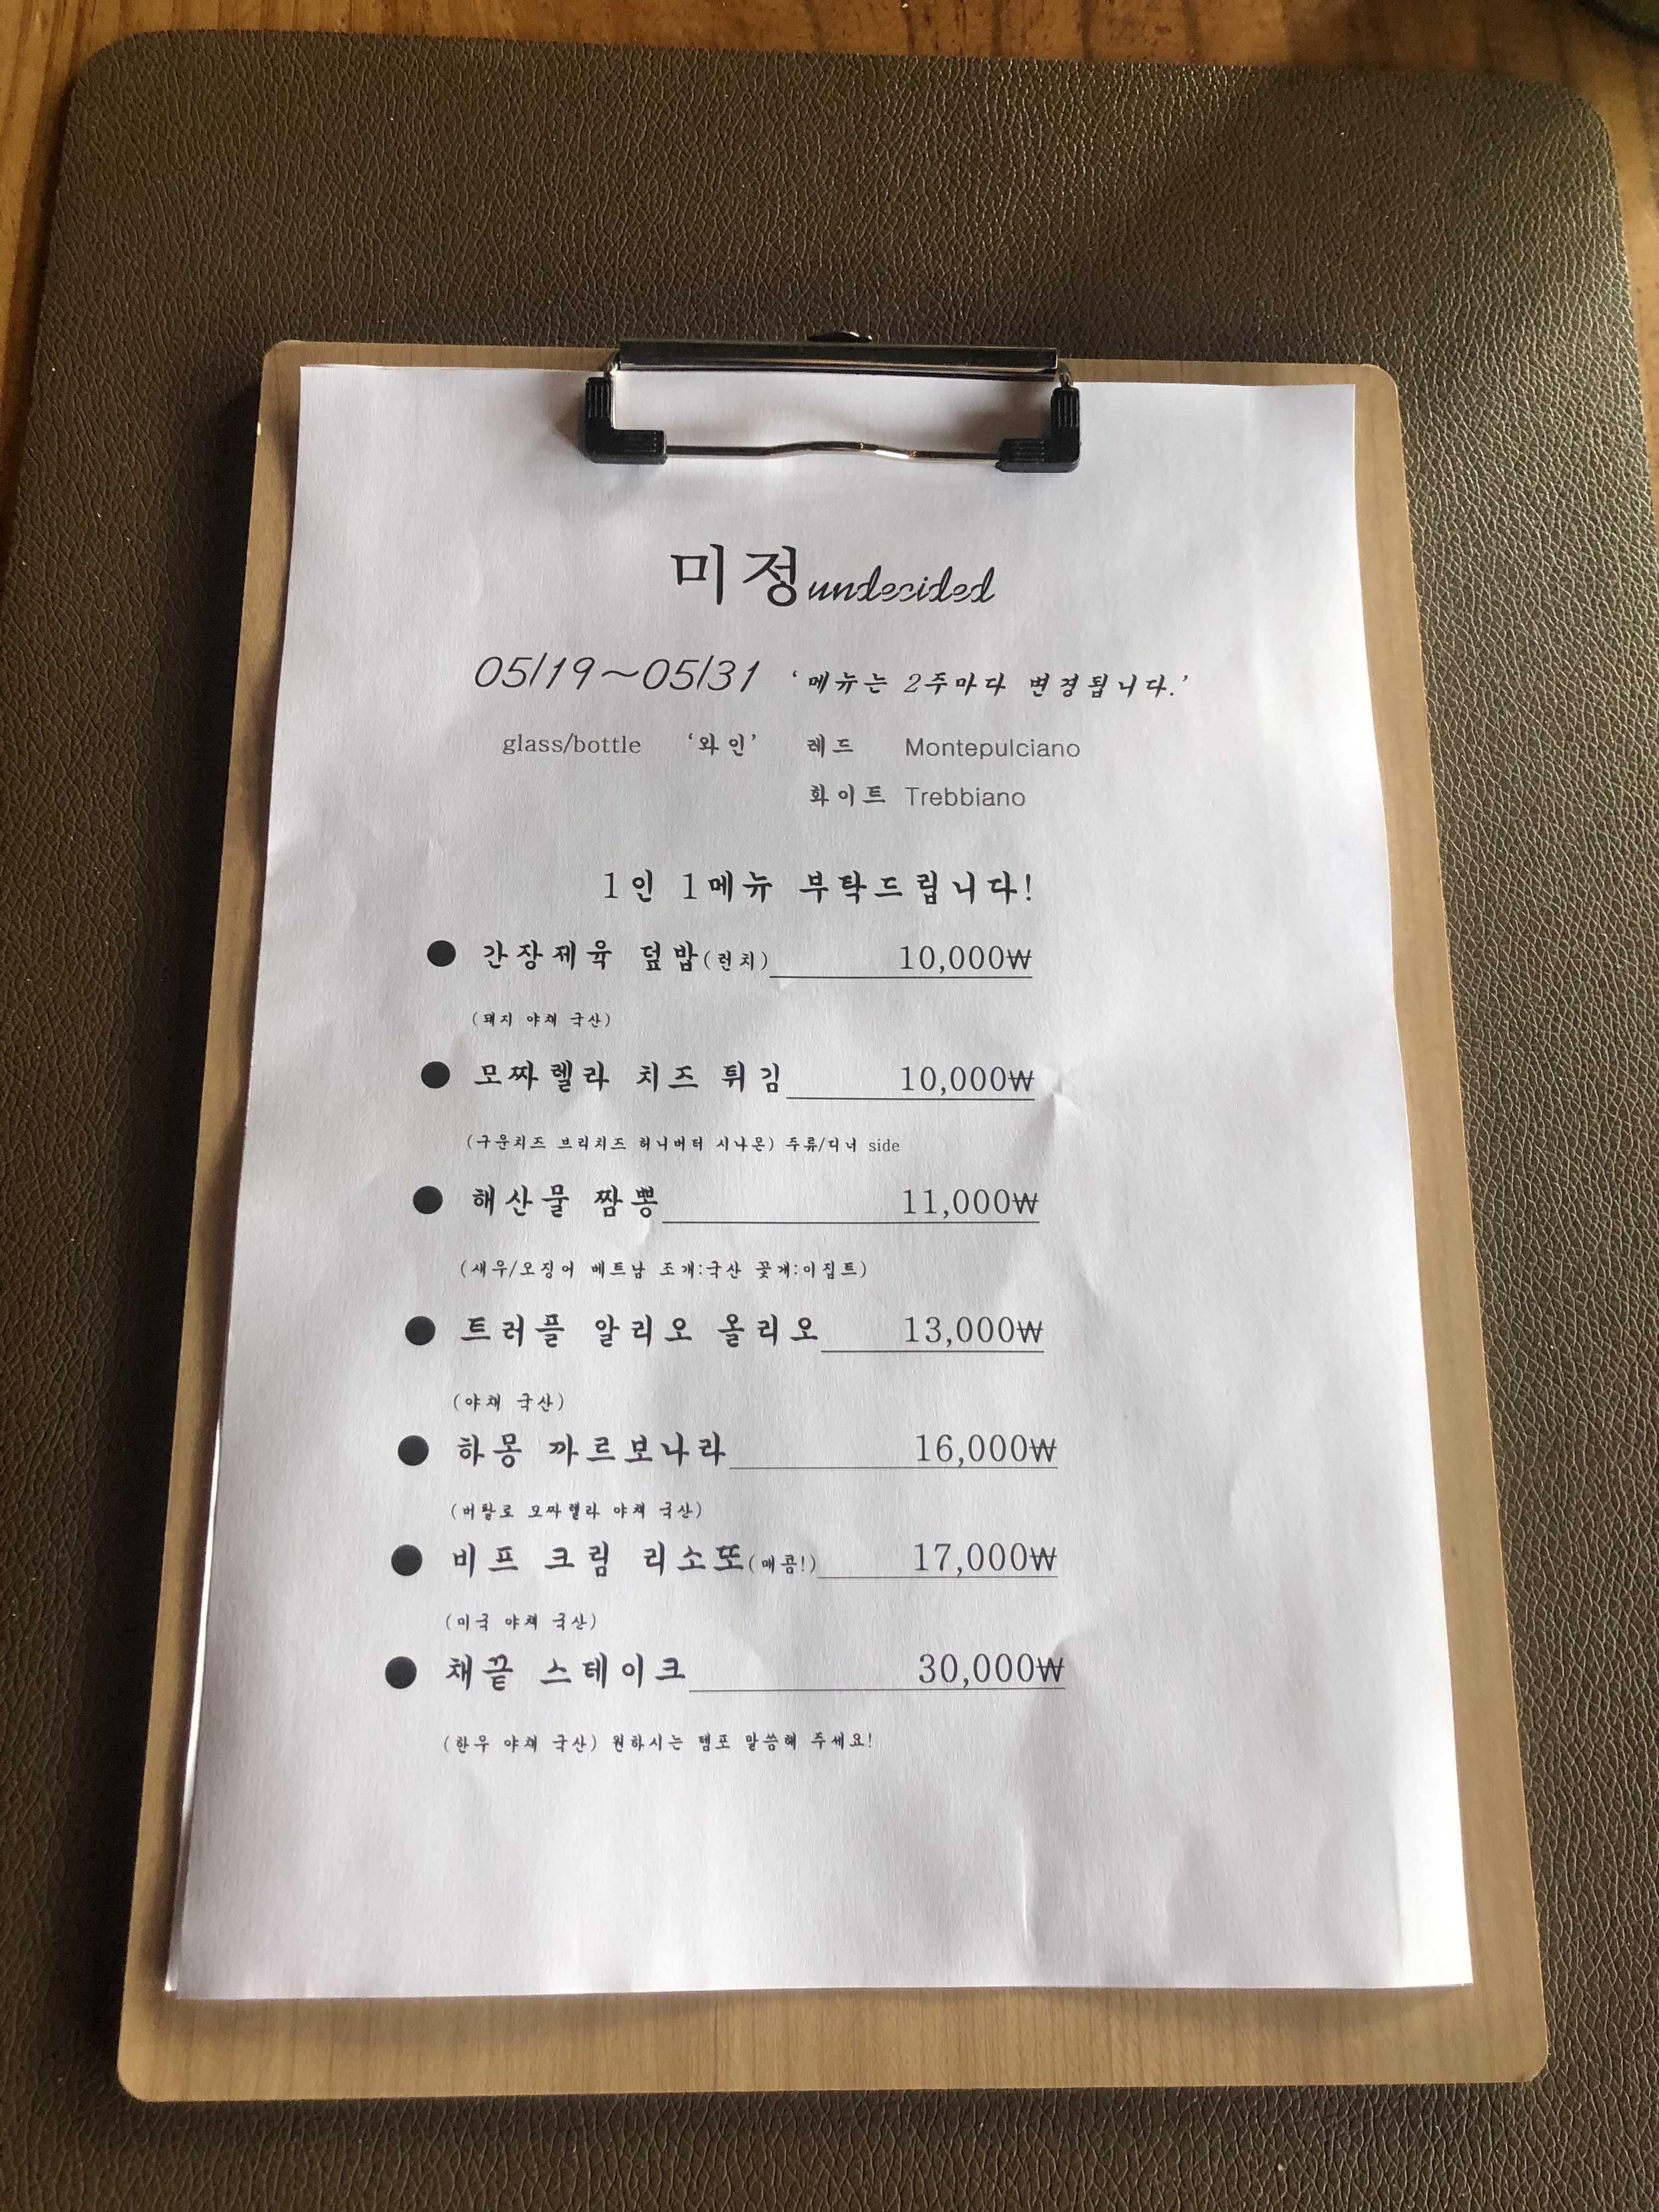 미정 undecided
05/19~05/31 ‘메뉴는 2주마다 변경됩니다.’
glass/bottle ‘와인’ 레드 Montepulciano
화이트 Trebbiano
1인 1메뉴 부탁드립니다!
● 간장제육 덮밥(런치) 10,000₩
(돼지 야채 국산)
● 모짜렐라 치즈 튀김 10,000₩
(구운치즈 브리치즈 허니버터 시나몬) 주류/디너 side
● 해산물 짬뽕 11,000₩
(새우/오징어 베트남 조개:국산 꽃게:이집트)
● 트러플 알리오 올리오 13,000₩
(야채 국산)
● 하몽 까르보나라 16,000₩
(버팔로 모짜렐라 야채 국산)
● 비프 크림 리소또(매콤!) 17,000₩
(미국 야채 국산)
● 채끝 스테이크 30,000₩
(한우 야채 국산) 원하시는 템포 말씀해 주세요!